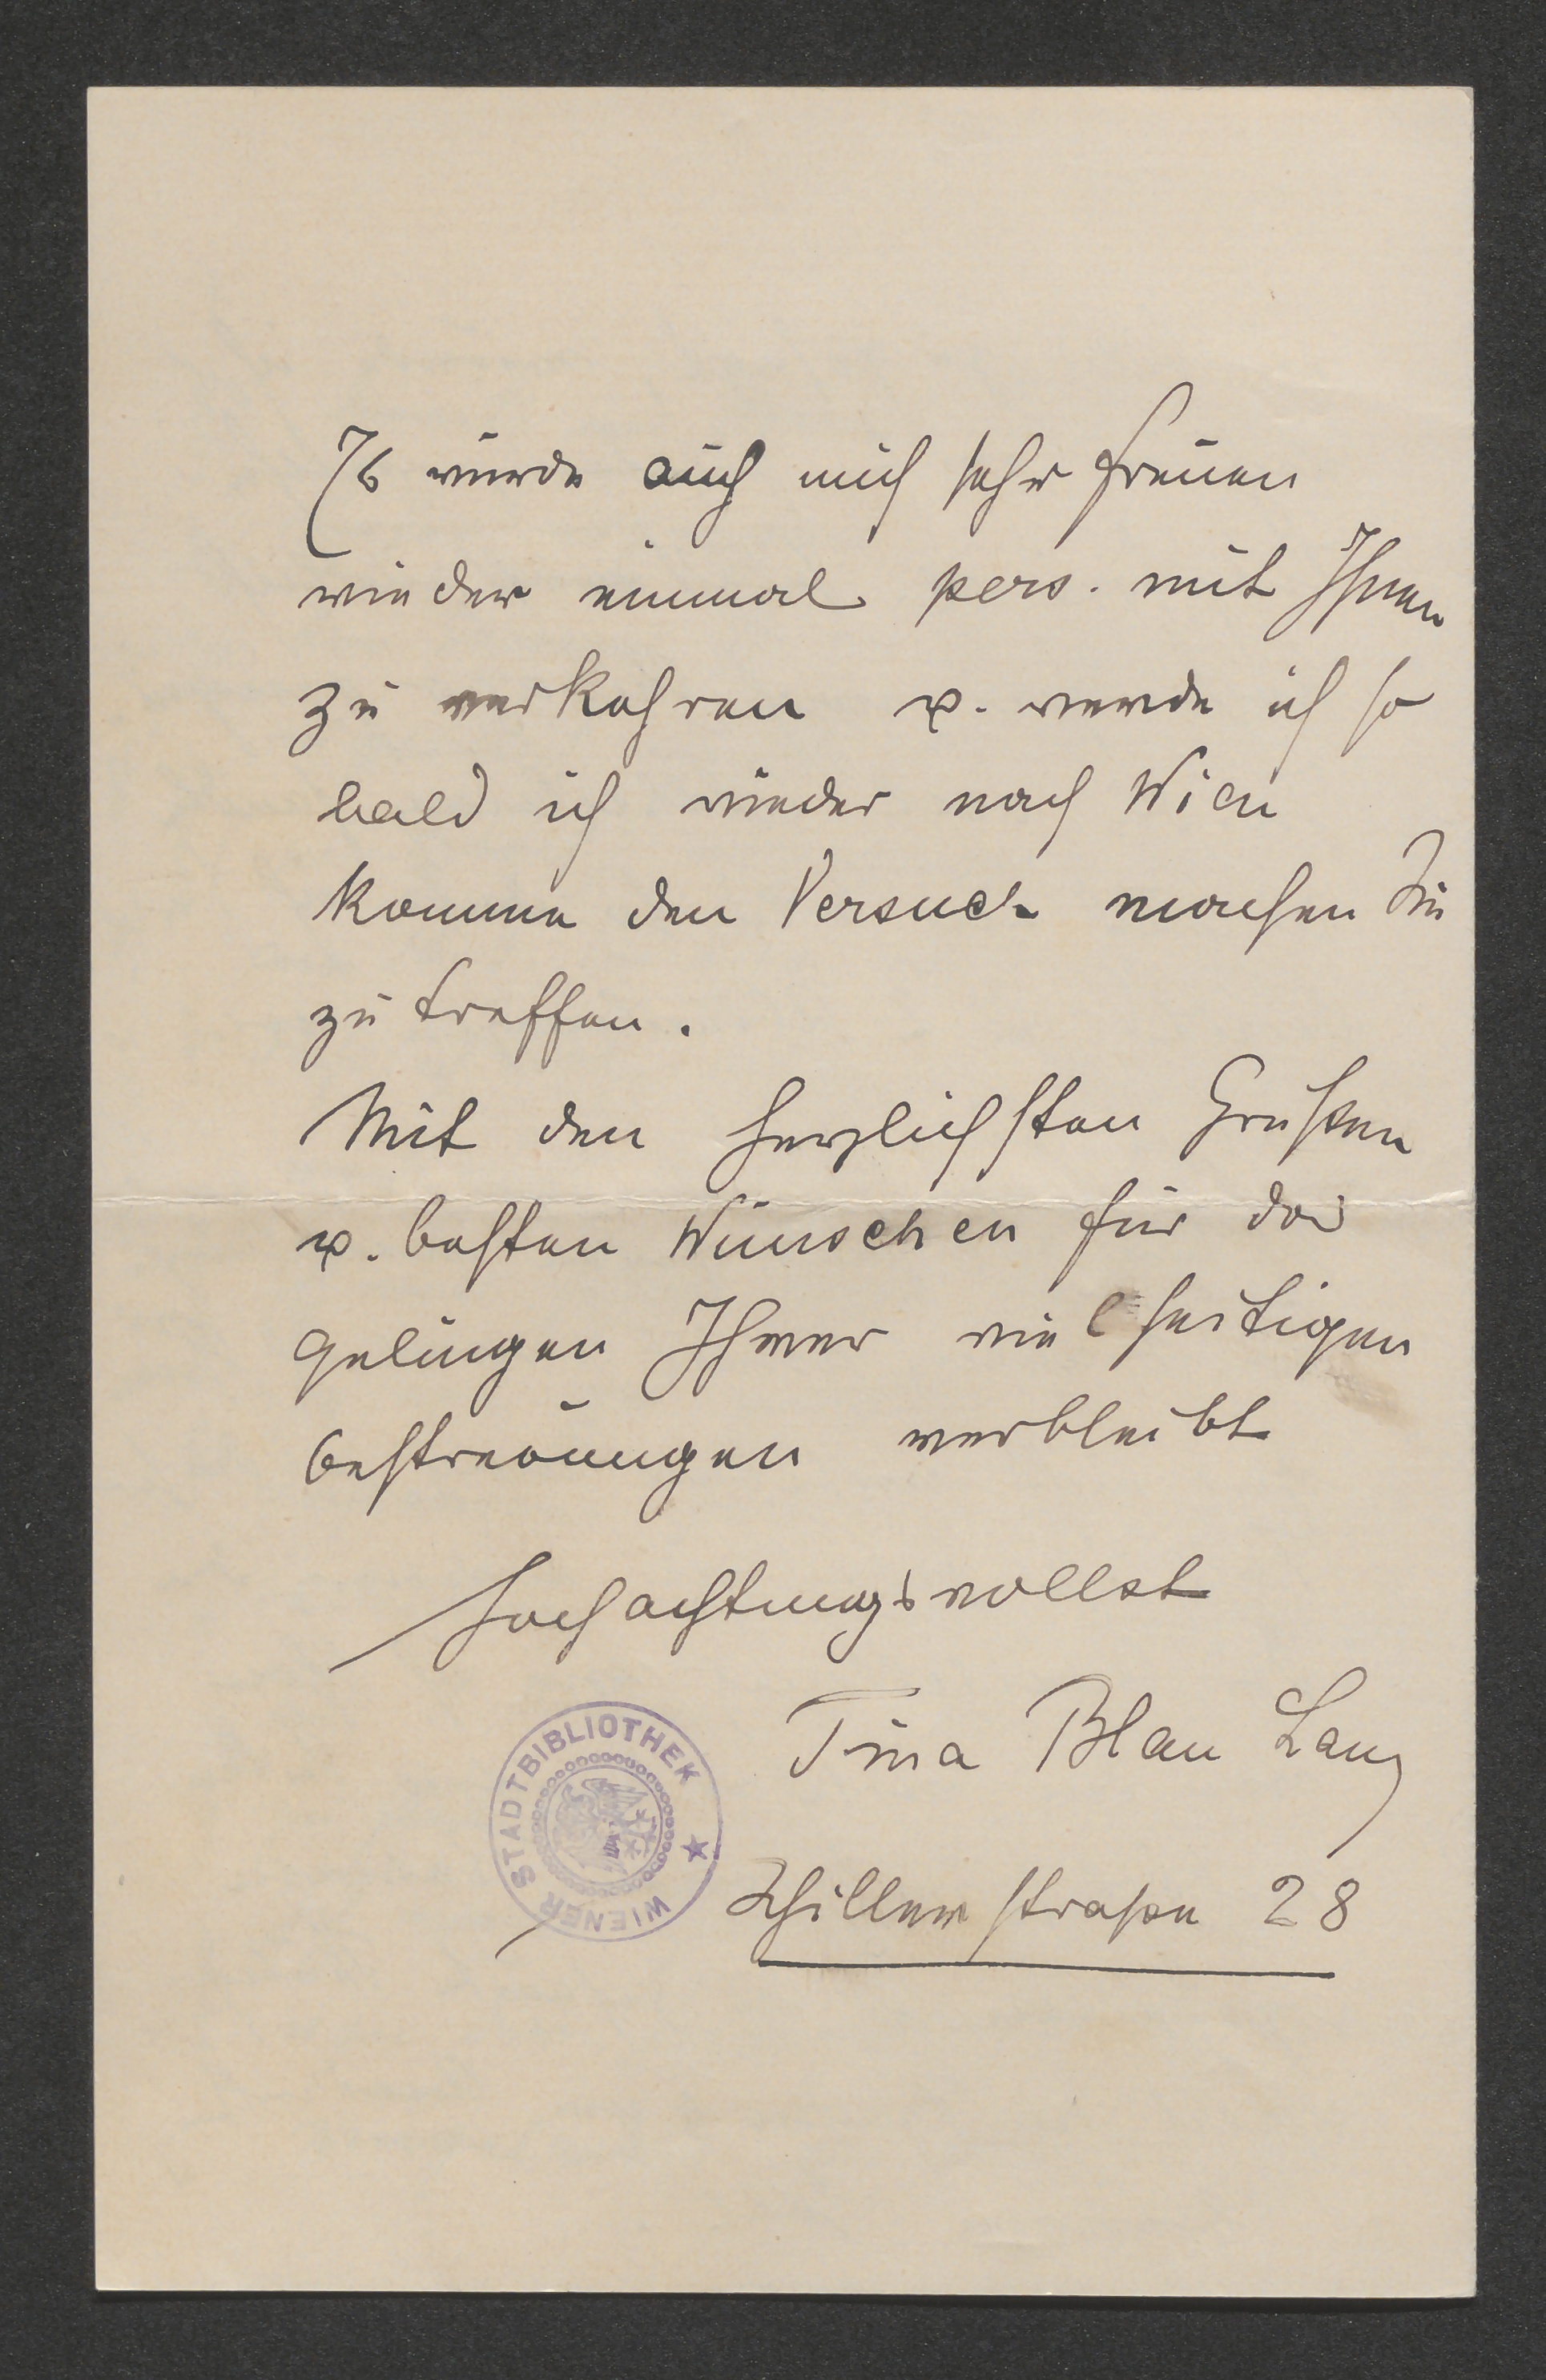 Es würde auch mich sehr freuen
wieder einmal pers. mit Ihnen
zu verkehren u. werde ich so
bald ich wieder nach Wien
komme den Versuch machen Sie
zu treffen.
Mit den herzlichsten Grüßen
u. besten Wünschen für das
gelingen Ihrer vielseitigen
bestrebungen verbleibt
Hochachtungsvollst
Tina Blau Lang
Schillerstraße 28
WIENER STADTBIBLIOTHEK